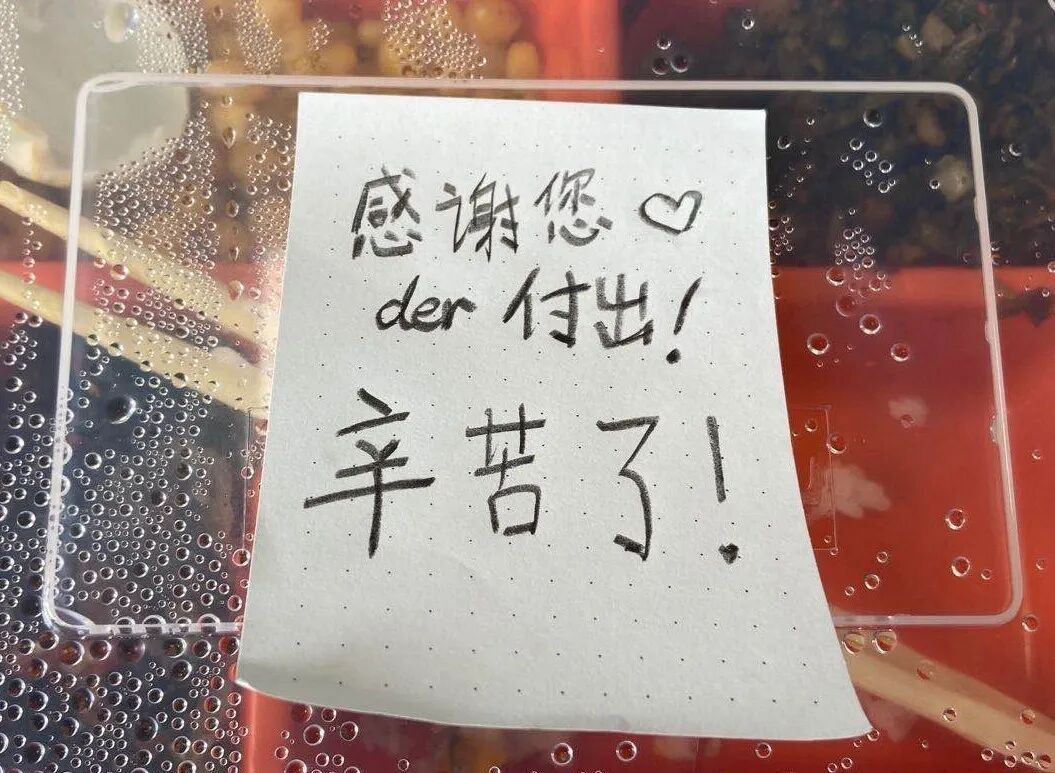 感谢您♡
der 付出!
辛苦了!